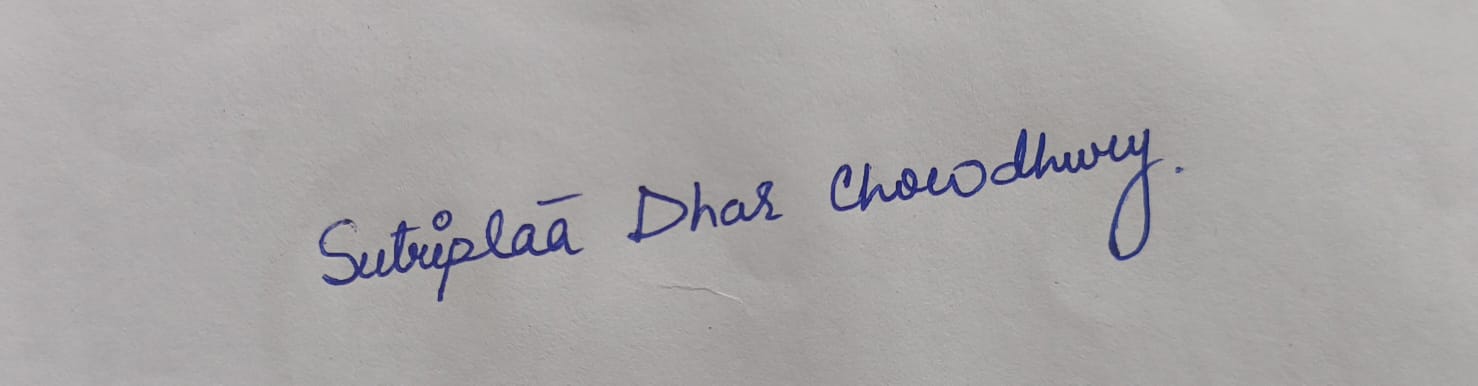 Sutriplaā Dhar Chowdhury.